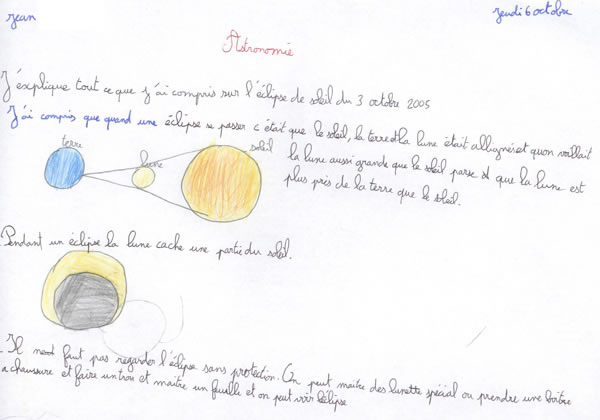 Jean
jeudi 6 octobre
Astronomie
J'éxplique tout ce que j'ai compris sur l'éclipse de soleil du 3 octobre 2005
J'ai compris que quand une éclipse se passer c était que le soleil, la terre et la lune était allignés et qu'on voillait
terre
lune
soleil
la lune aussi grande que le soleil parse que la lune est
plus près de la terre que le soleil.
Pendant un éclipse la lune cache une partie du soleil.
Il faut pas regarder l'éclipse sans protection. On peut maitre des lunette spécial ou prendre une boitre
a chaussure et faire un trou et maitre un feuille et on peut voir l'éclipse